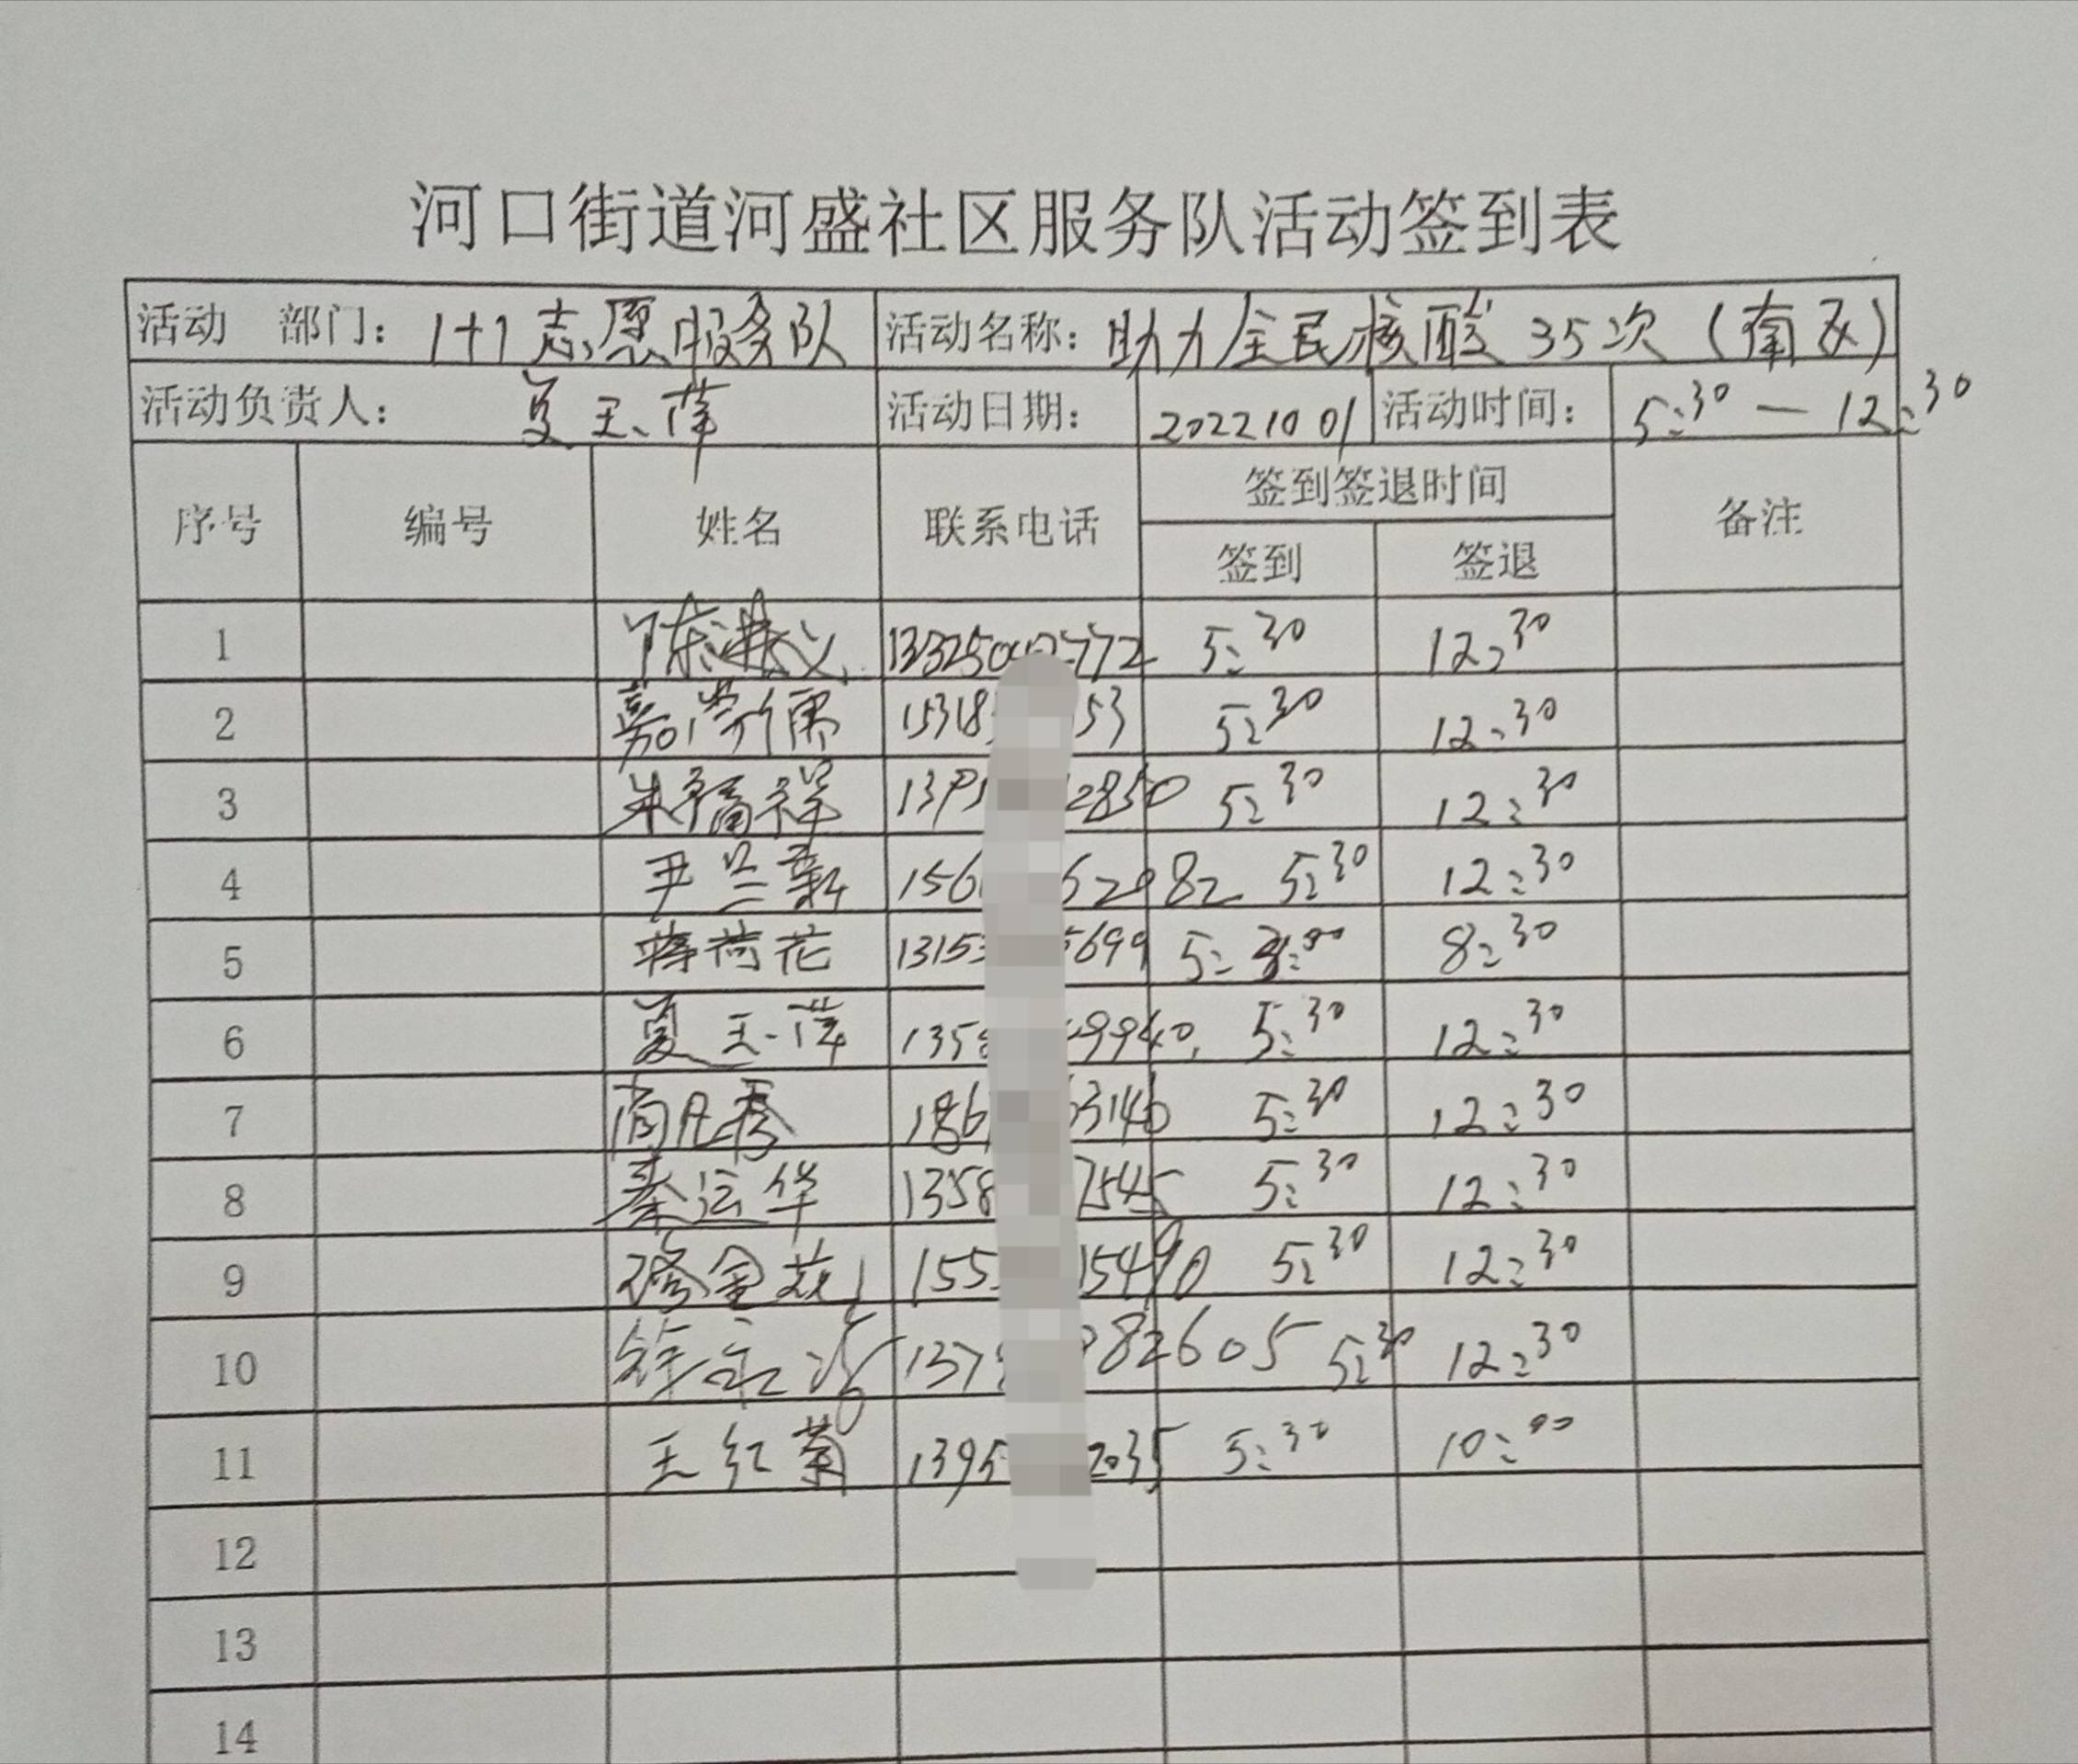 河口街道河盛社区服务队活动签到表
活动 部门: 1+1志愿服务队 活动名称: 助力全民核酸35次(南区)
活动负责人: 夏玉萍 活动日期: 20221001 活动时间: 5:30—12:30
序号 编号 姓名 联系电话 签到签退时间 备注
签到 签退
1 5:30 12:30
2 15318 53 5:30 12:30
3 朱福祥 2850 5:30 12:30
4 尹兰新 156 62982 5:30 12:30
5 蒋荷花 13153 5699 8:30
6 夏玉萍 1358 9940 5:30 12:30
7 186 63146 5:30 12:30
8 秦运华 1358 7545 5:30 12:30
9 155 15490 5:30 12:30
10 137 82605 5:30 12:30
11 王红菊 1395 2035 5:30 10:00
12
13
14